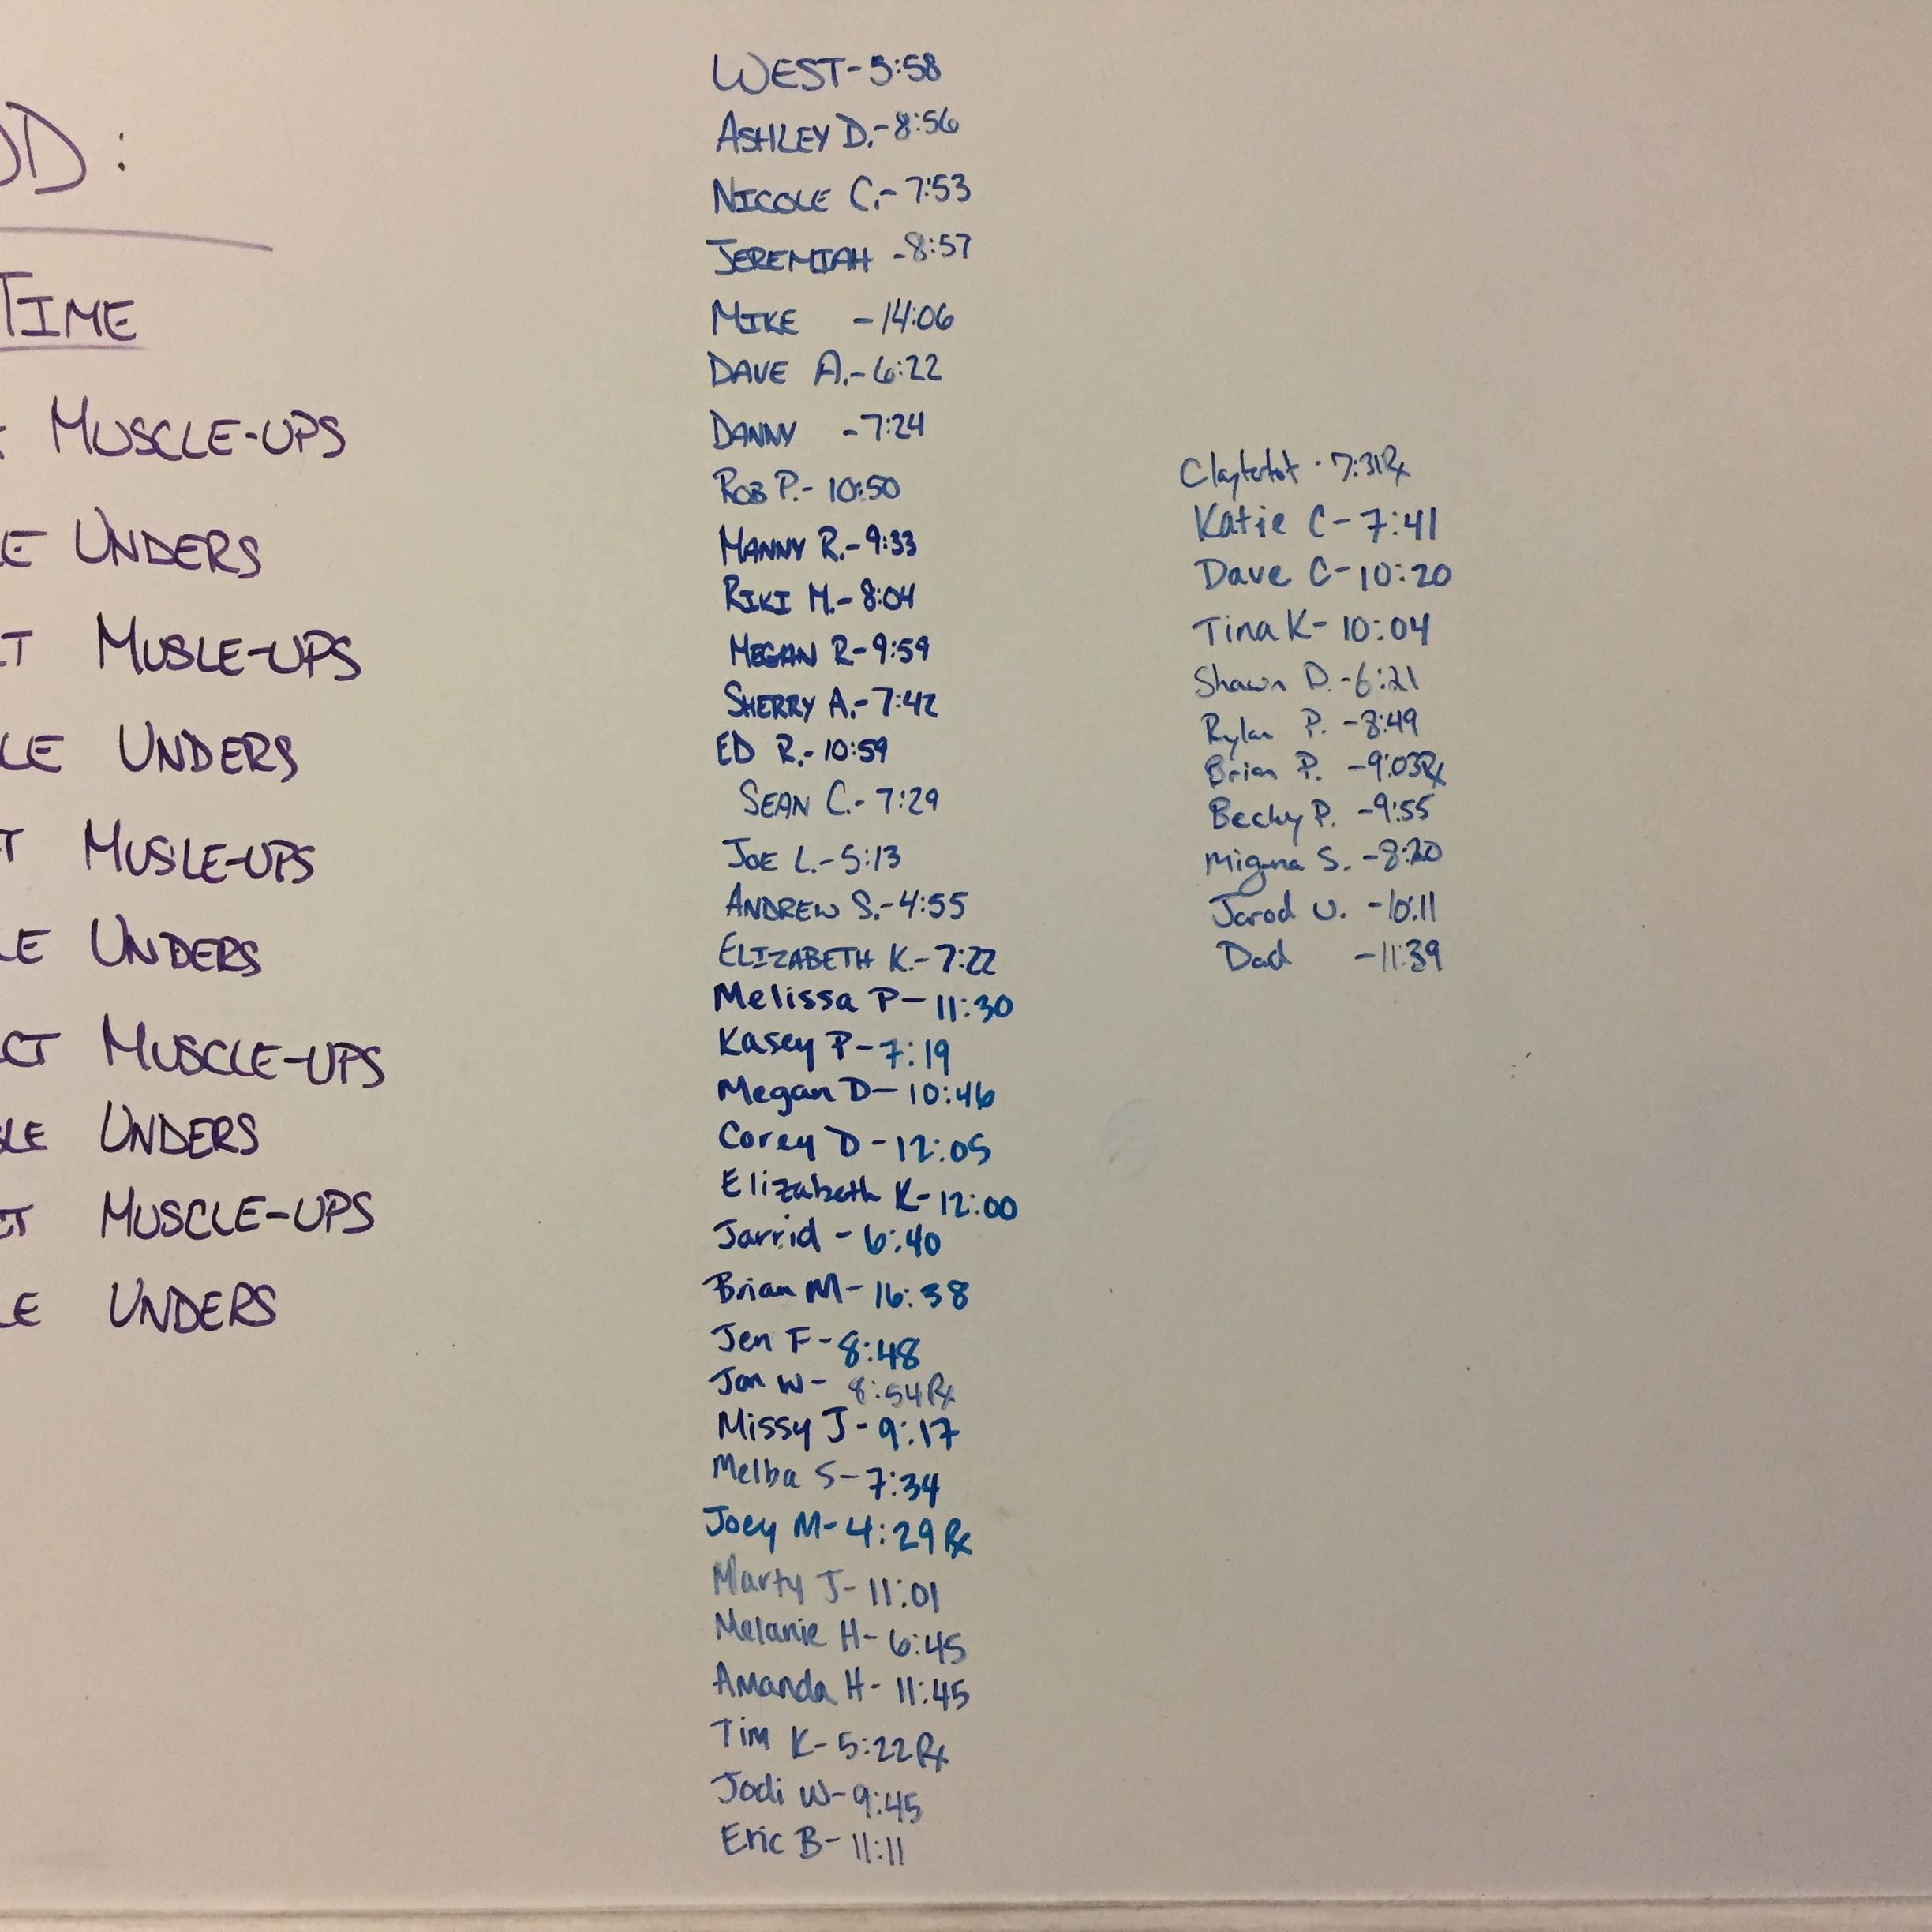 OD:
TIME
MUSCLE-UPS
E UNDERS
T MUSLE-UPS
LE UNDERS
T MUSLE-UPS
LE UNDERS
CT MUSCLE-UPS
LE UNDERS
CT MUSCLE-UPS
LE UNDERS
WEST-5:58
ASHLEY D.-8:56
NICOLE C.-7:53
JEREMIAH -8:57
MIKE -14:06
DAVE A.-6:22
DANNY -7:24
ROB P.- 10:50
MANNY R.-9:33
RIKI M.-8:04
MEGAN R-9:59
SHERRY A.-7:42
ED R.-10:59
SEAN C.-7:29
JOE L.-5:13
ANDREW S.-4:55
ELIZABETH K.-7:22
Melissa P-11:30
Kasey P-7:19
Megan D-10:46
Corey D-12:05
Elizabeth K-12:00
Jarrid - 6:40
Brian M-16:38
Jen F-8:48
Jon W- 8:54 Rx
Missy J-9:17
Melba S-7:34
Joey M-4:29 Rx
Marty J-11:01
Melanie H-6:45
Amanda H-11:45
Tim K-5:22 Rx
Jodi W-9:45
Eric B-11:11
Claytotot · 7:31 Rx
Katie C-7:41
Dave C-10:20
Tina K-10:04
Shawn D.-6:21
Rylan P. -8:49
Brian P. -9:03 Rx
Becky P. -9:55
S. -8:20
Jarod U. -10:11
Dad -11:39